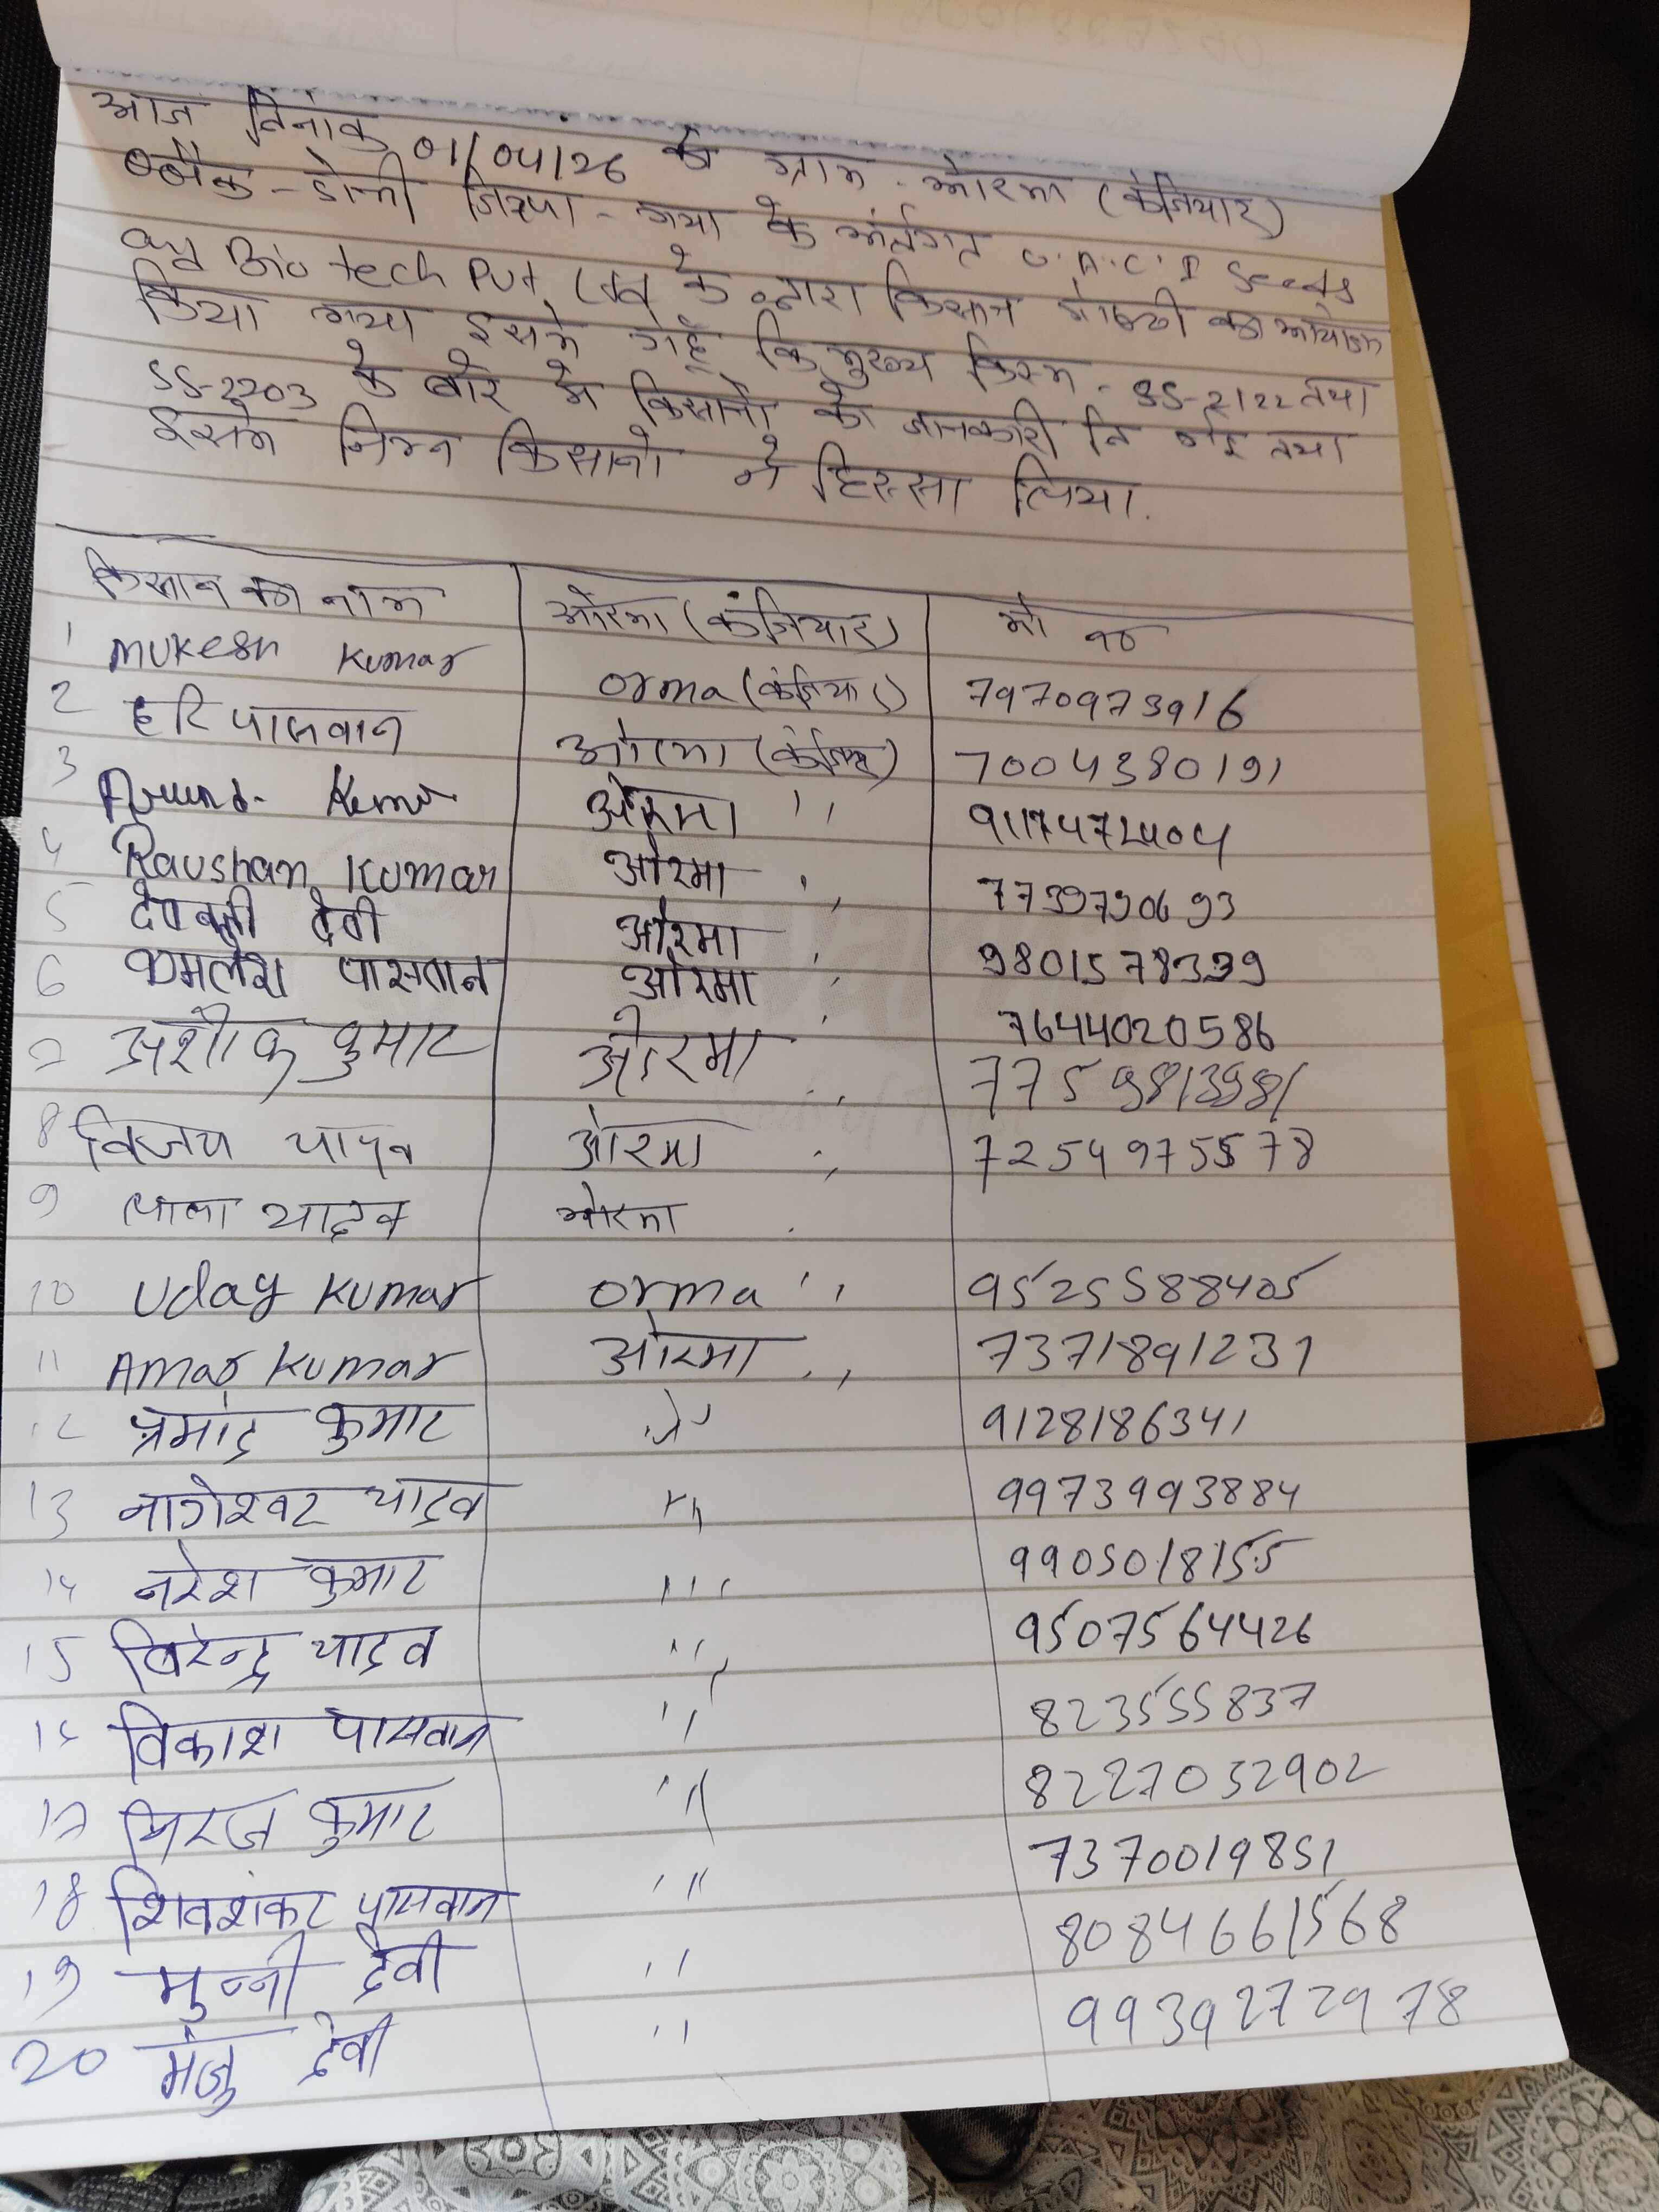 आज दिनांक 01/04/26 को ग्राम - ओरमा (केनियार)
ब्लौक - डोभी जिल्पा - गया के अंर्तगत U.A.C.I Seeds
And Bio tech Put. Ltd के द्वारा किसान गोष्ठी का आयोजन
किया गया इसमे गेहूँ कि मुख्य किस्म - SS-2122 तथा
SS-2203 के बारे मे किसानो को जानकारी दि गई तथा
इसमे निम्न किसानो ने हिस्सा लिया.
किसान का नाम ओरमा (कंनियार) मो न०
1 Mukesh Kumar orma (कंनियार) 7970973916
2 हरि पासवान ओरमा 7004380191
3 Kumar ओरमा '' 9117472404
4 Raushan Kumar ओरमा '' 7739790693
5 देवकली देवी ओरमा '' 9801578399
6 कमलेश पासवान ओरमा '' 7644020586
7 अशोक कुमार ओरमा '' 7759813981
8 विजय यादव ओरमा '' 7254975578
9 लाला यादव ओरमा
10 Uday Kumar orma '' 9525588405
11 Amar Kumar ओरमा '' 7371891231
12 प्रमोद कुमार '' 9128186341
13 नागेश्वर यादव '' 9973993884
14 नरेश कुमार ''' 9905018155
15 विरेन्द्र यादव '' 9507564426
16 विकाश पासवान '' 823555837
17 कुमार '' 8227032902
18 शिवशंकर पासवान '' 7370019851
19 मुन्नी देवी '' 8084661568
20 मंजु देवी '' 9939272978